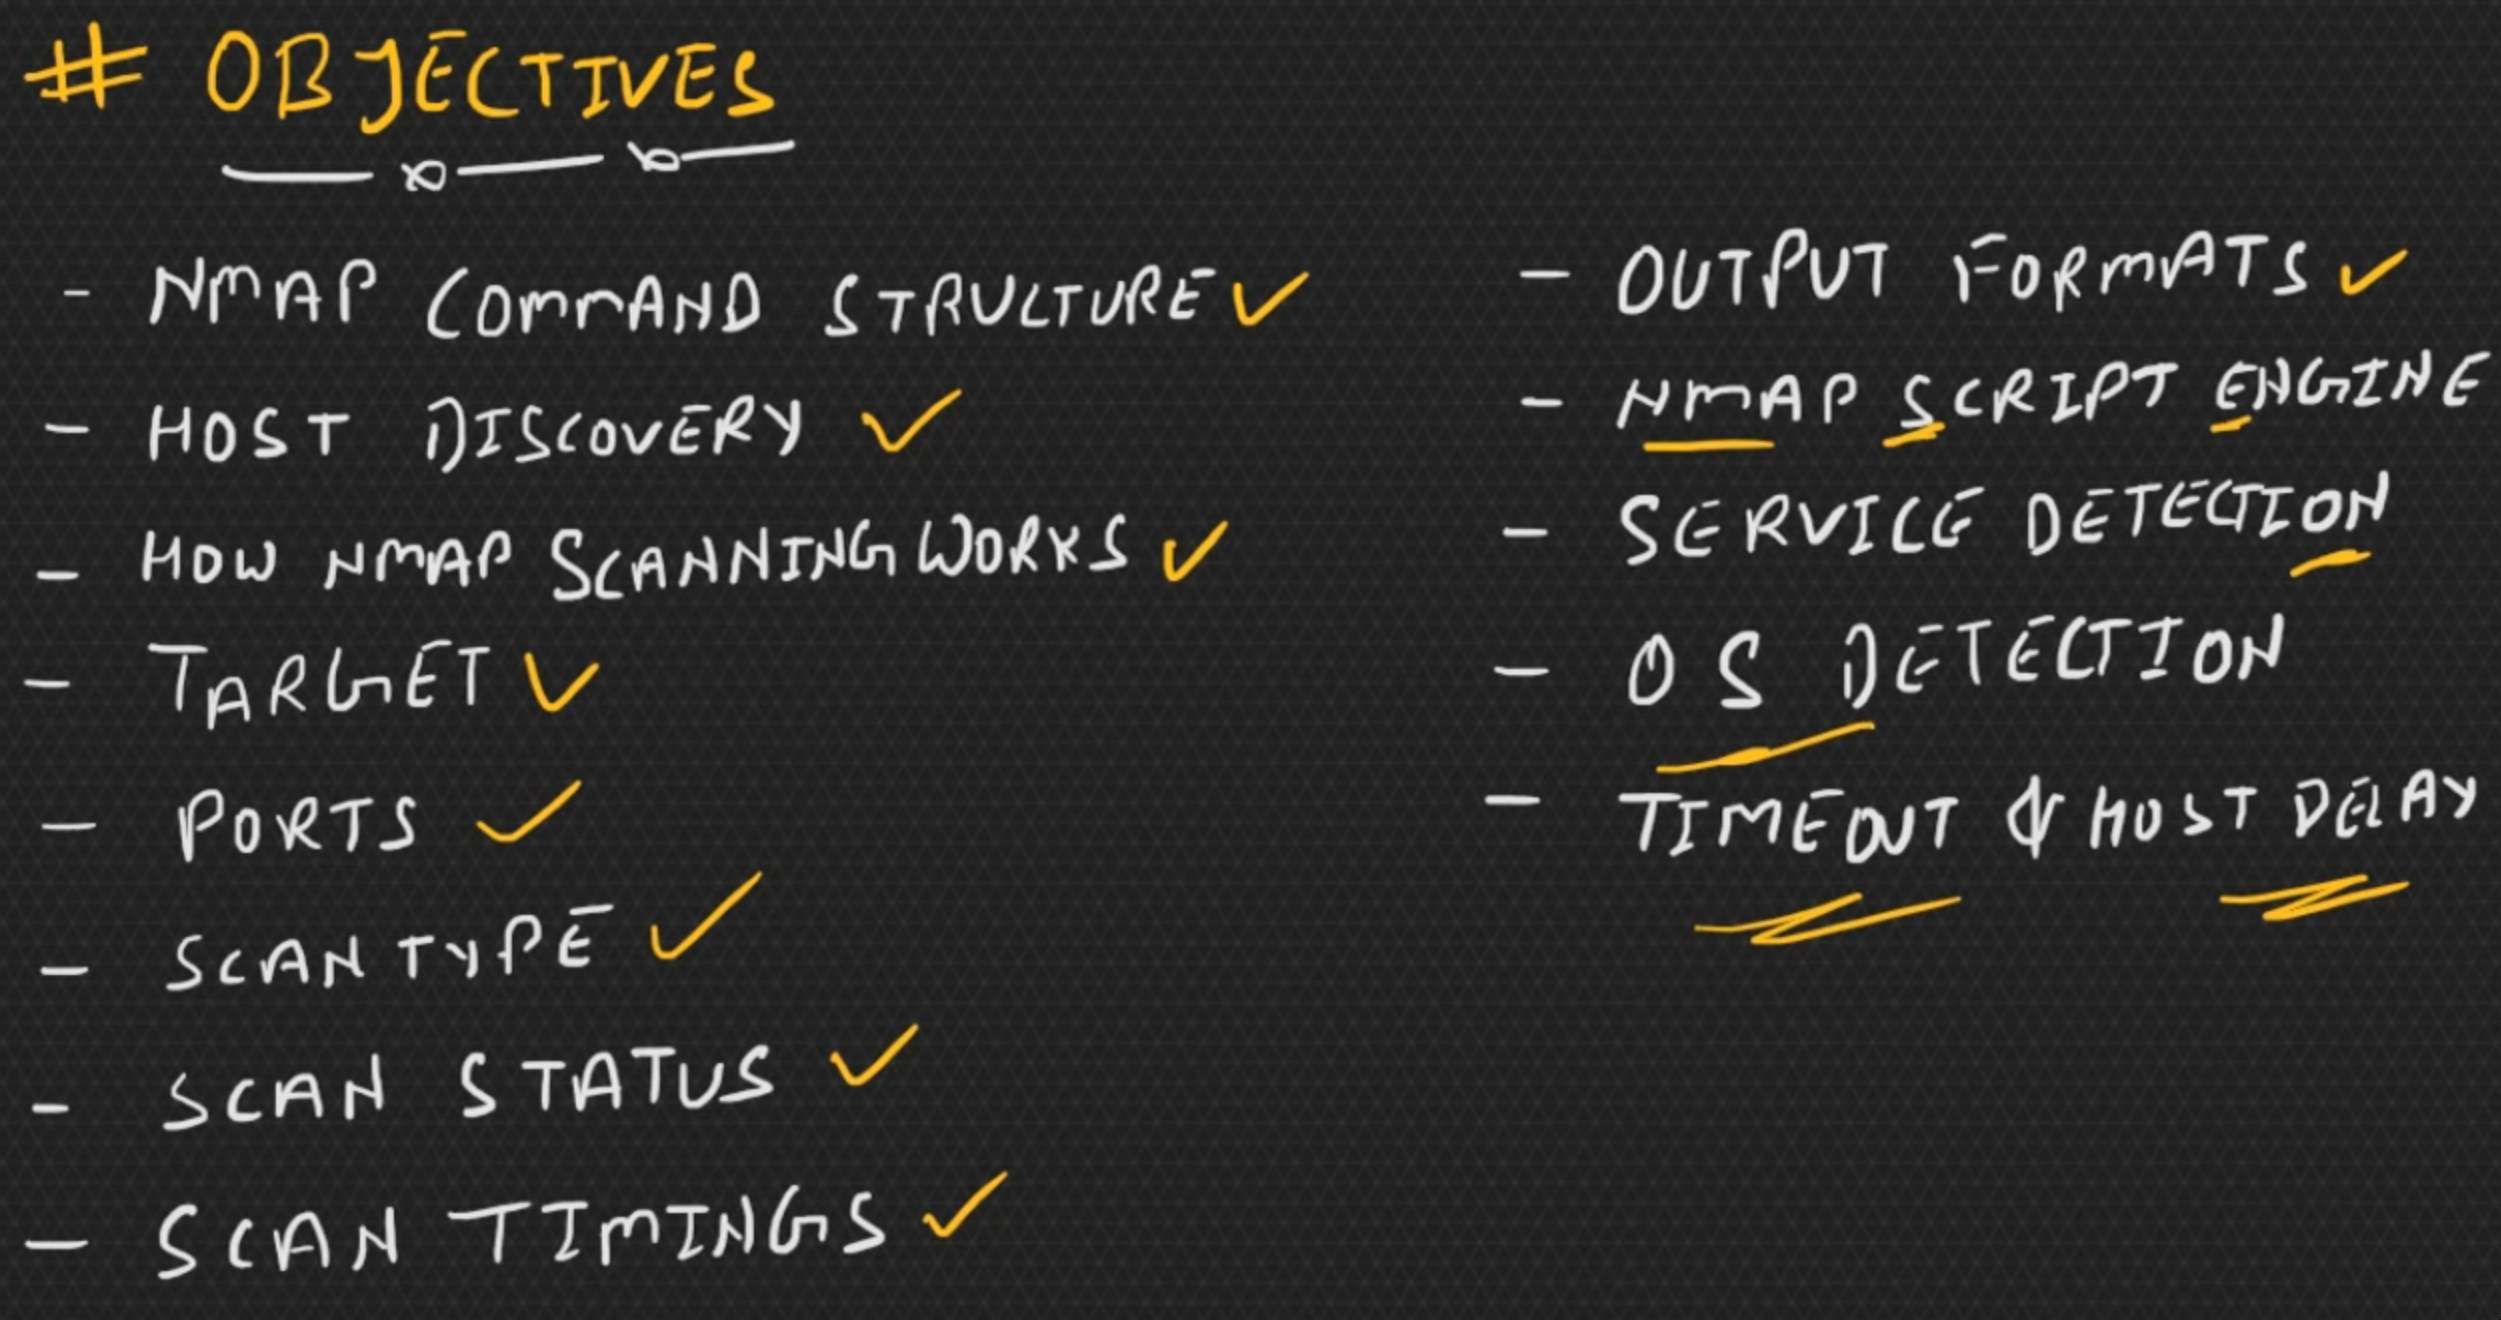 # OBJECTIVES
- NMAP COMMAND STRUCTURE ✓
- HOST DISCOVERY ✓
- HOW NMAP SCANNING WORKS ✓
- TARGET ✓
- PORTS ✓
- SCAN TYPE ✓
- SCAN STATUS ✓
- SCAN TIMINGS ✓
- OUTPUT FORMATS ✓
- NMAP SCRIPT ENGINE
- SERVICE DETECTION
- OS DETECTION
- TIMEOUT & HOST DELAY